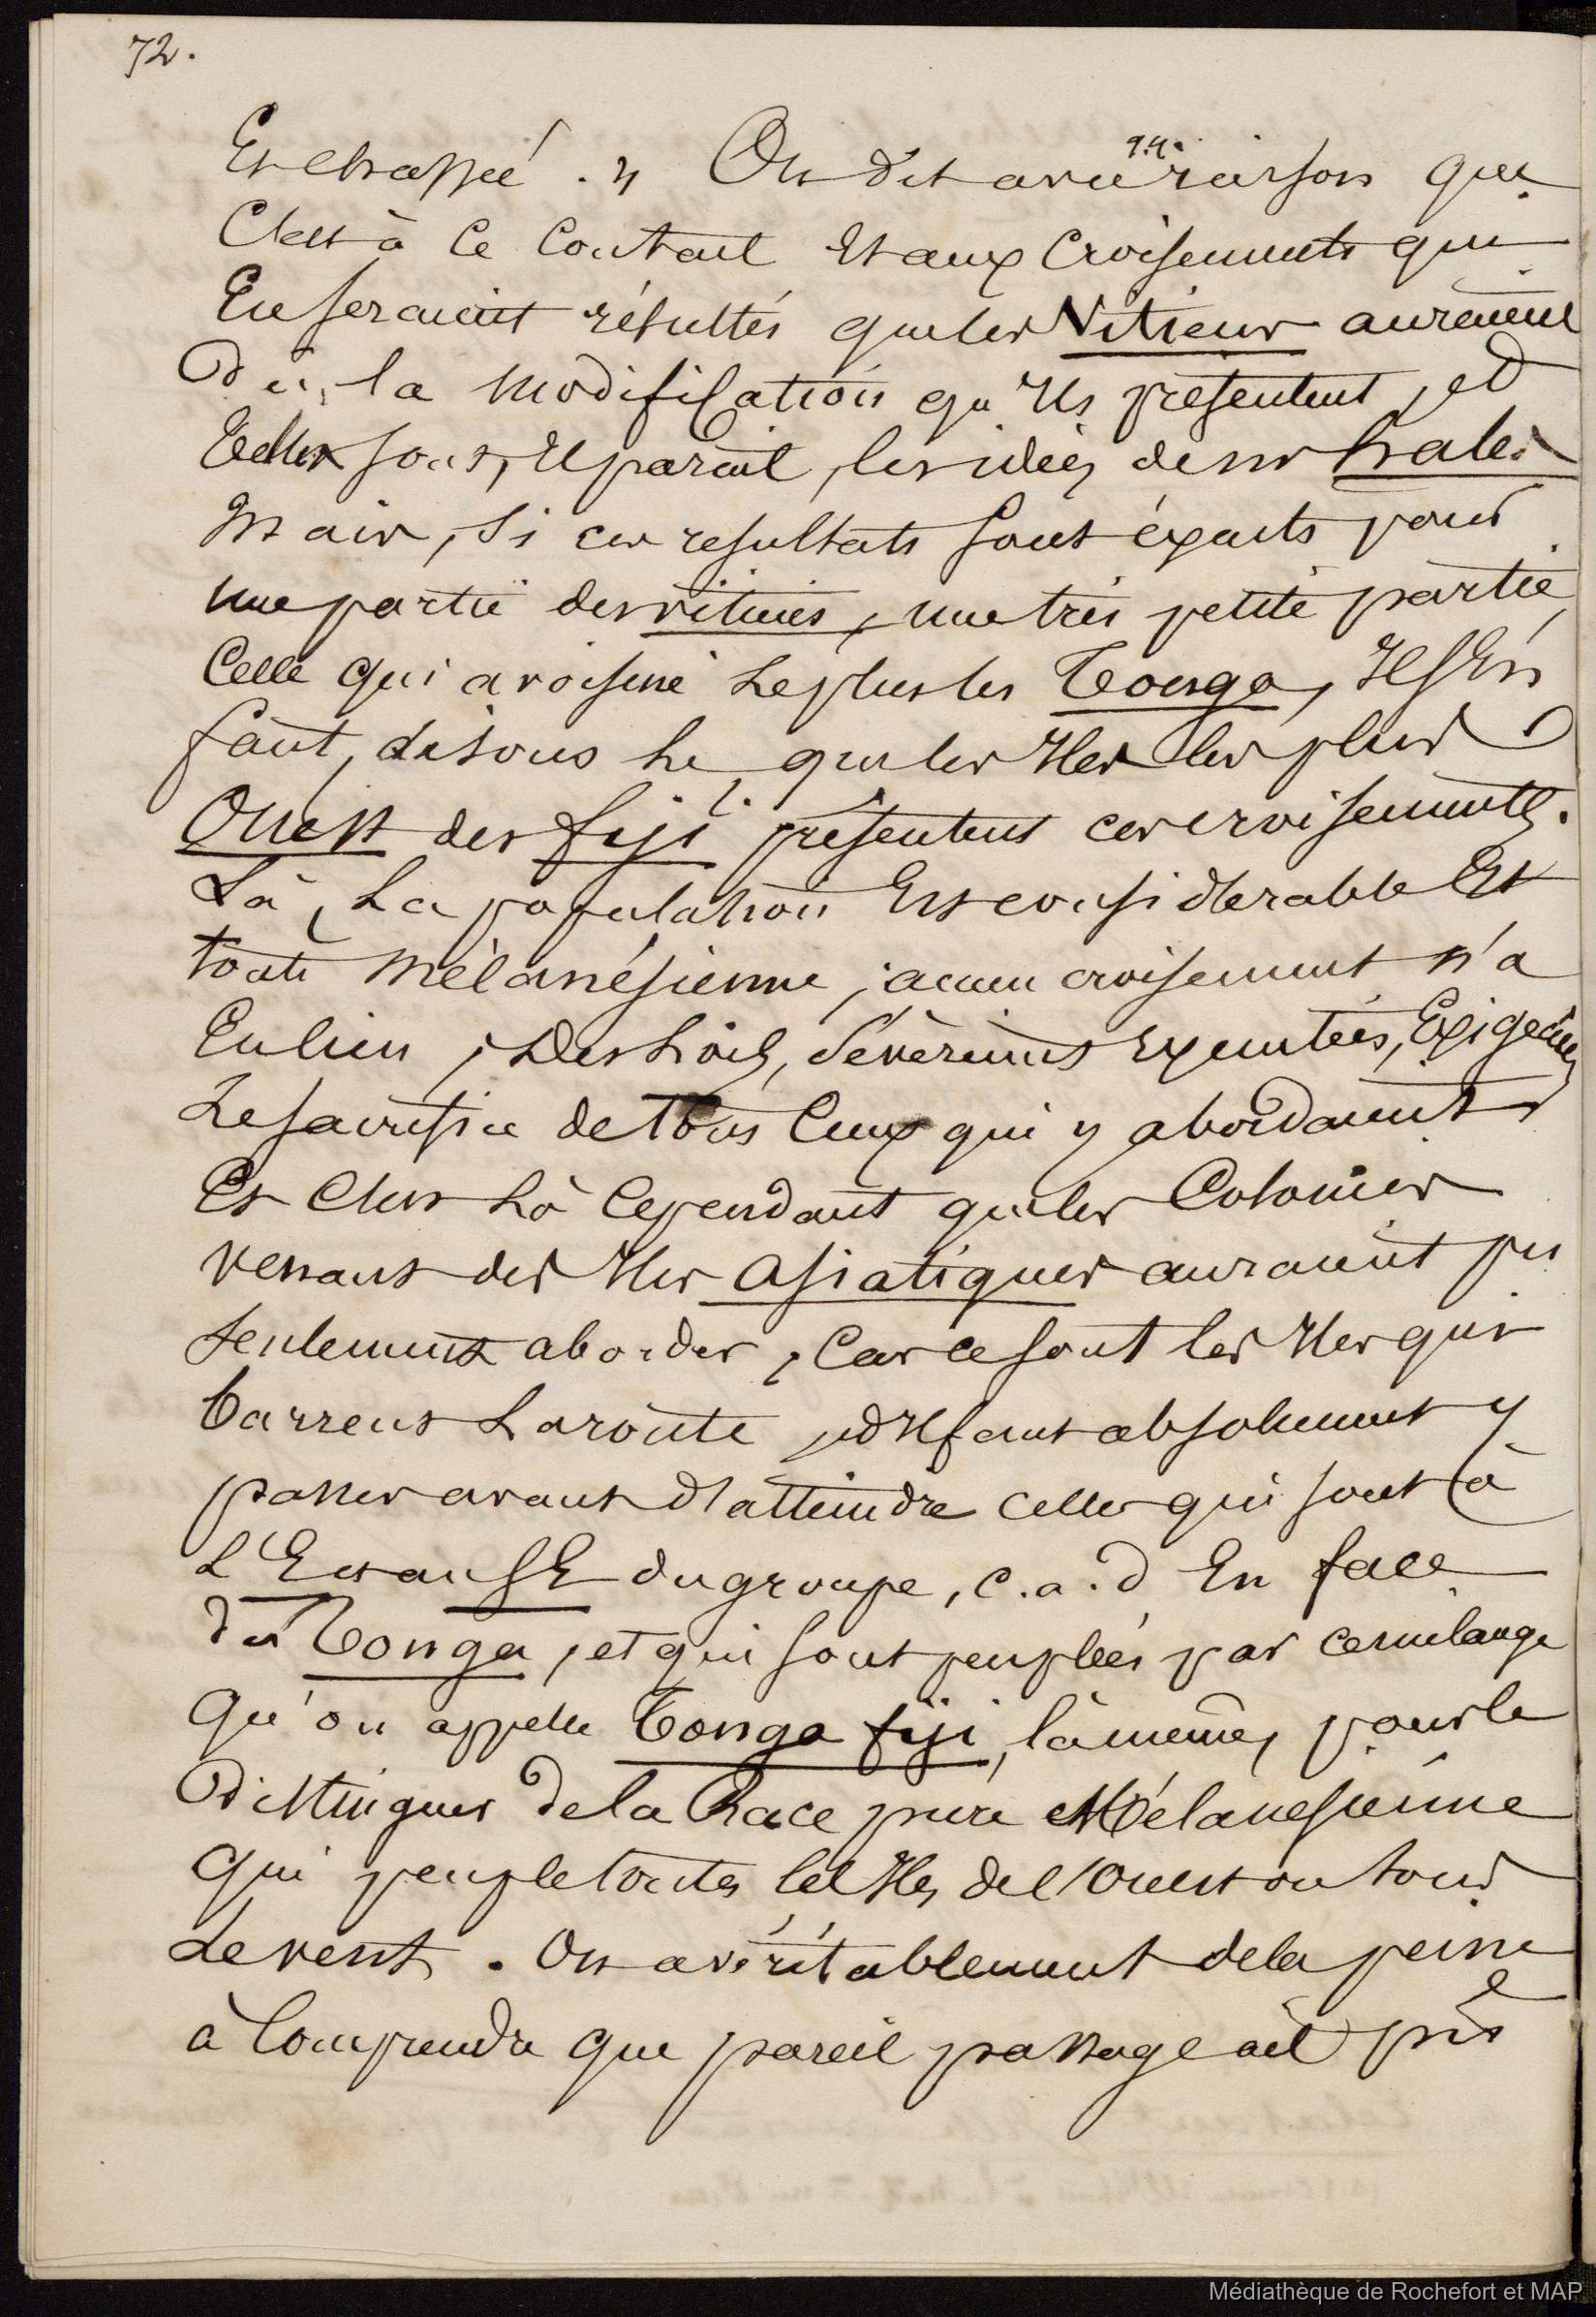 72.
Et chassée. » On dit avec q.q. raison que
C'est à ce Contact Et aux Croisements qui
En seraient résultés que les Vitiens auraient
dû, la modification qu'Ils présentent, et
telles sont, Il parait, les idées de Mr hale.
Mais, si ces resultats sont éxacts pour
une partie des vitiens, une très petite partie,
Celle qui avoisine Le plus les Tonga, Il s'En
faut, disons le, que les Iles les plus
Ouest des fiji présentent ces croisements.
Là, La population Est considérable Et
toute Mélanésienne; aucun croisement n'a
Eu lieu; Des Lois, sévèrement Exécutées, Exigeaient
Le sacrifice de Tous Ceux qui y abordaient
Et C'est Là Cependant que les Colonies
venant des Iles Asiatiques auraient pu
seulement aborder, Car ce sont les Iles qui
barrent La route, et Il faut absolument y
passer avant d'atteindre celles qui sont à
L'Est au SE du groupe, c.a.d En face
des Tonga, et qui sont peuplées par ce mélange
Qu'on appelle Tonga fiji, là même, pour le
Distinguer de la Race pure Mélanésienne
Qui peuple toutes les Iles de l'Ouest ou sous
Le vent. On a véritablement de la peine
à Comprendre que pareil passage ait pu